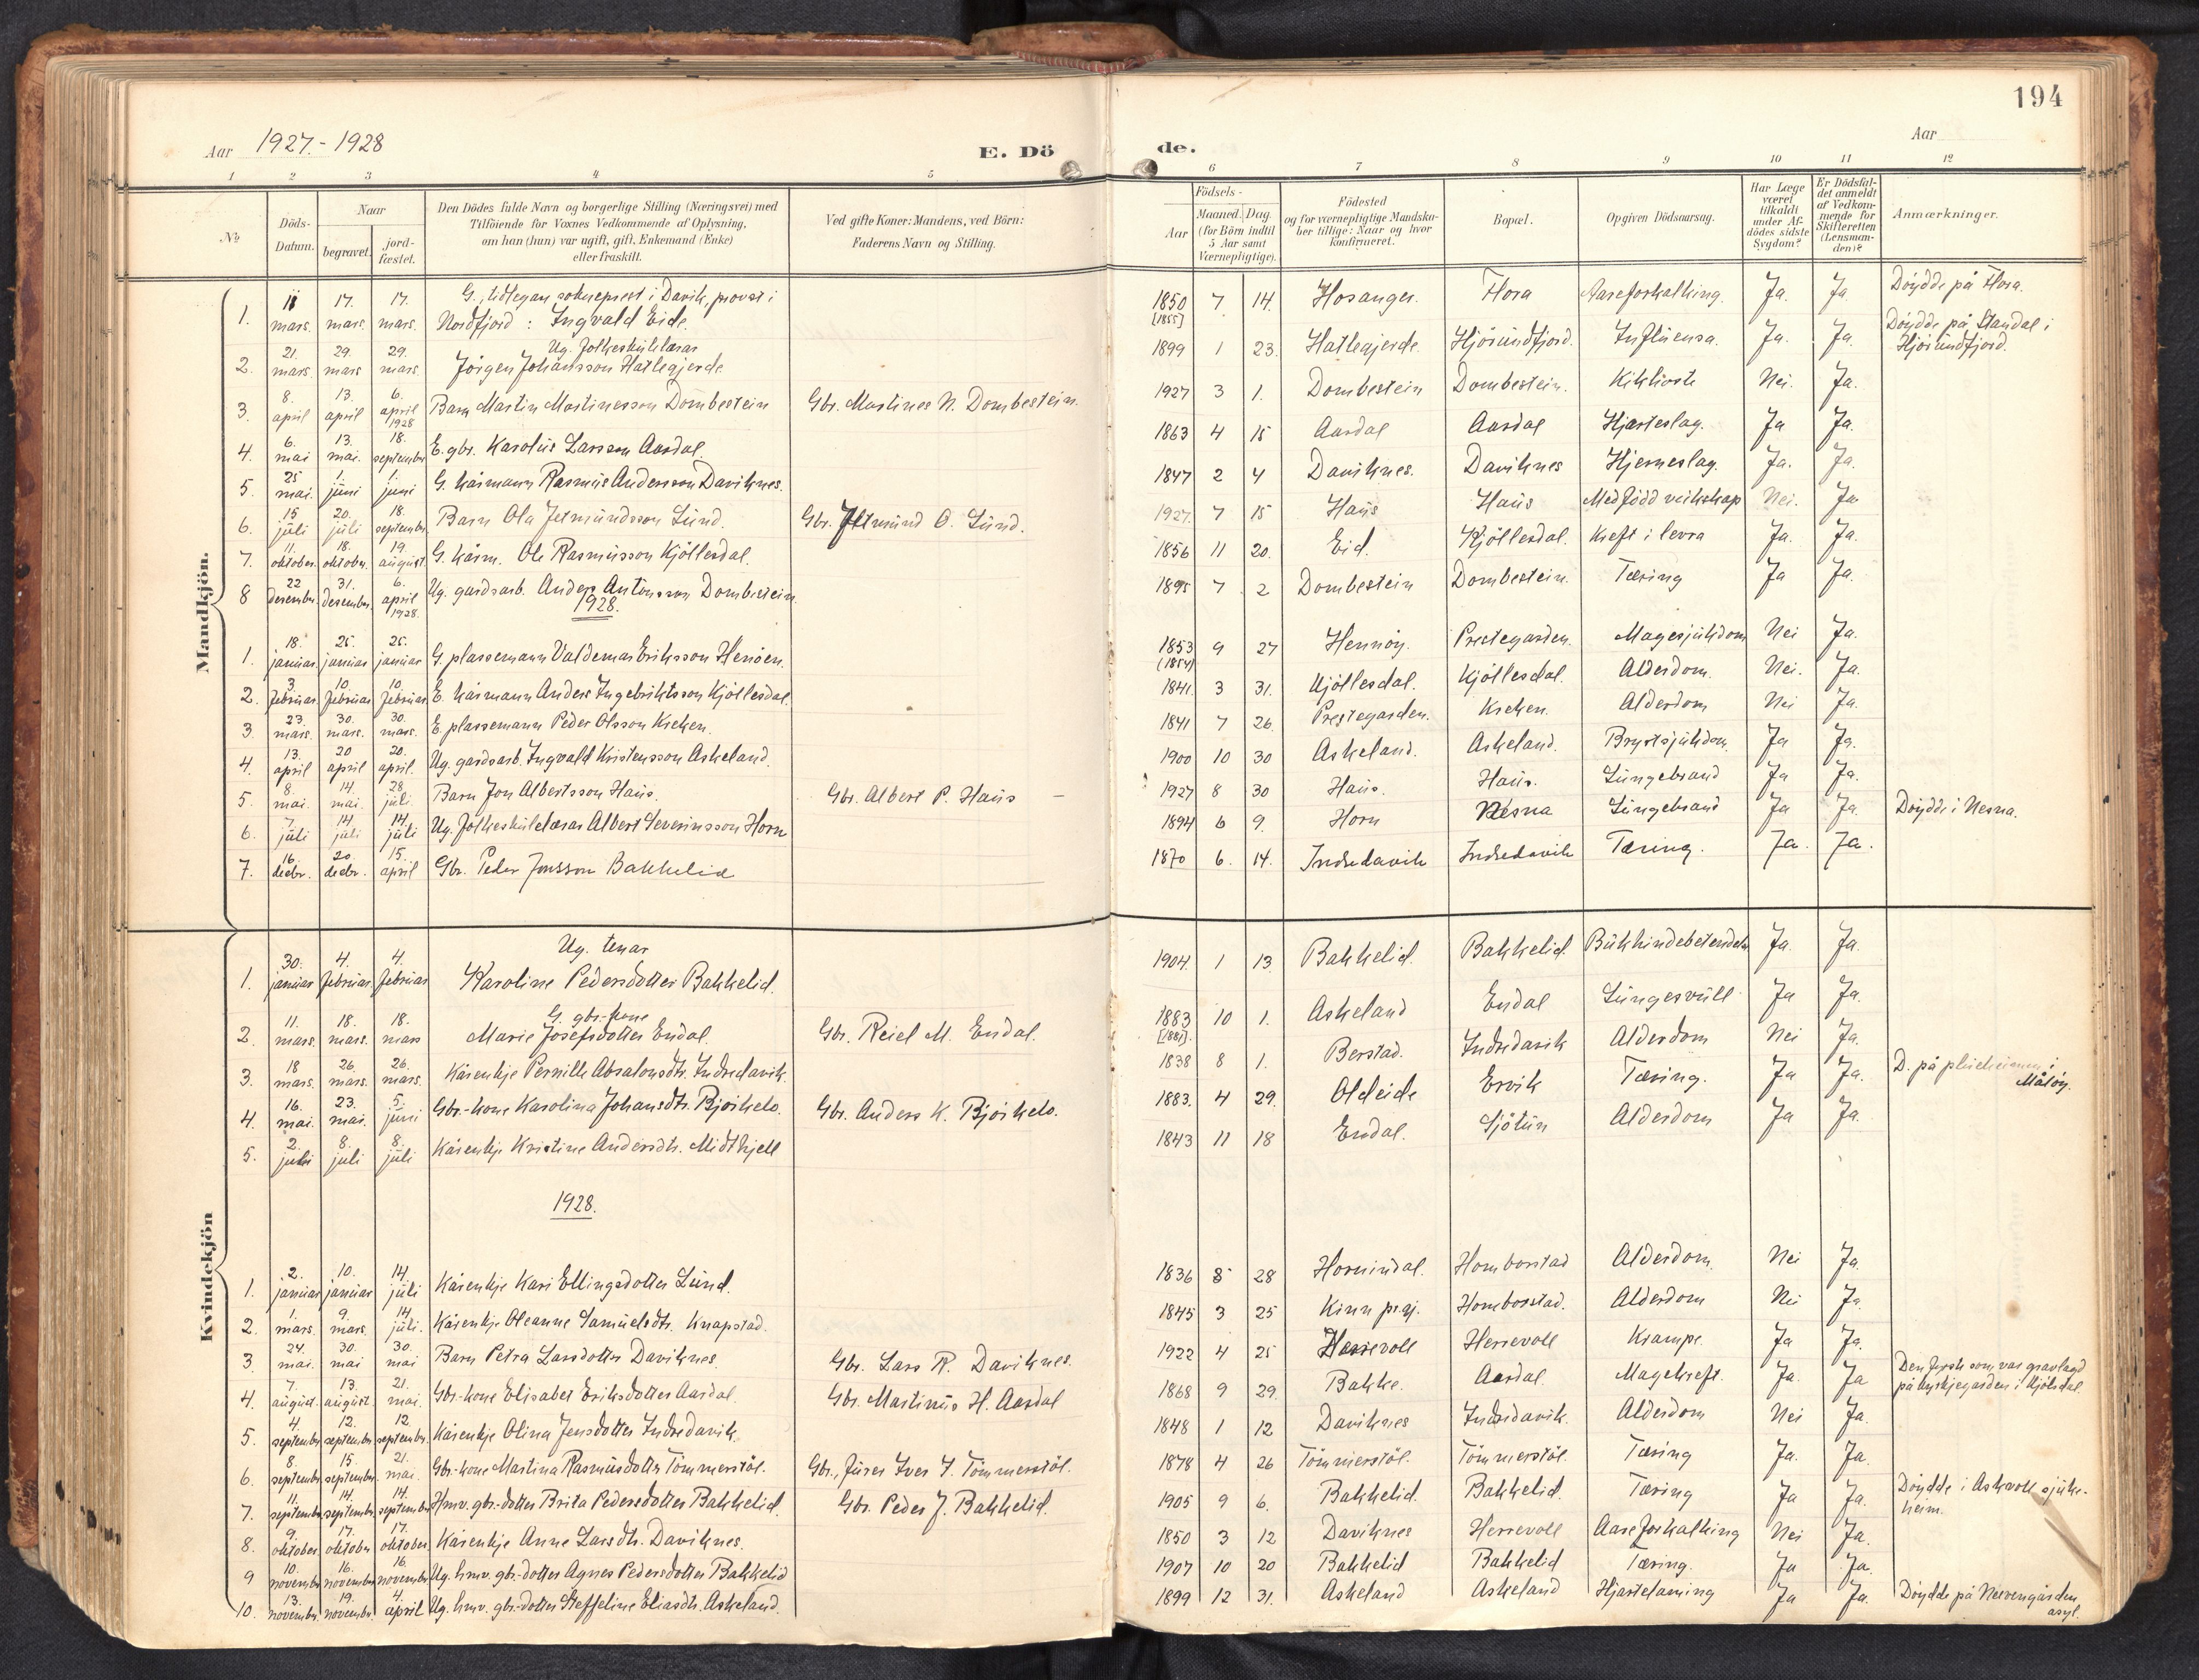 194
Aar 1927.-1928
E. Dö de.
Aar
1 2 3 4 5 6 7 8 9 10 11 12
No
Döds-Datum.
Naar
begravet.
jord-fæstet.
Den Dödes fulde Navn og borgerlige Stilling (Næringsvei) med
Tilföiende for Voxnes Vedkommende af Oplysning,
om han (hun) var ugift, gift, Enkemand (Enke)
eller fraskilt.
Ved gifte Koner: Mandens, ved Börn:
Faderens Navn og Stilling.
Födsels-
Aar
Maaned. Dag.
(for Börn indtil
5 Aar samt
Værnepligtige).
Födested
og for værnepligtige Mandska-
ber tillige: Naar og hvor
konfirmeret.
Bopæl.
Opgiven Dödsaarsag.
Har Læge
været
tilkaldt
under Af-
dödes sidste
Sygdom?
Er Dödsfal-
det anmeldt
af Vedkom-
mende for
Skifteretten
(Lensman-
den)?
Anmærkninger.
Mandkjön.
1. 11 mars. 17. mars. 17. mars. G., tidlegare sokneprest i Davik, provst i Nordfjord: Ingvald Eide. 1850 [1855] 7 14. Hosanger. Flora Aareforkalking. Ja. Ja Döydde på Flora.
2. 21. mars. 29. mars 29. mars Ug. folkeskulelærar Jörgen Johansson Hatlegjerde 1899 1 23. Hatlegjerde. Hjörundfjord. Influensa. Ja. Ja. Döydde på Standal i Hjörundfjord.
3. 8. april 13. april 6. april 1928 Barn Martin Martinusson Dombestein Gbr. Martines N. Dombestein. 1927 3 1. Dombestein Dombestein. Kikhoste Nei. Ja.
4. 6. mai 13. mai. 18. september E. gbr. Karolus Larsson Aardal. 1863 4 15 Aardal Aardal Hjarteslag. Ja Ja.
5. 25 mai. 1. juni 1. juni G. kårmann Rasmus Andersson Daviknes. 1847 2 4 Daviknes. Daviknes Hjerneslag. Ja. Ja.
6. 15 juli 20. juli 18. september Barn Ola Jetmundsson Lund. Gbr. Jetmund O. Lund. 1927. 7 15 Haus Haus Medfödd veikskap Nei. Ja
7. 11. oktober. 18. oktober. 19. august G. kårm. Ole Rasmusson Kjöllesdal. 1856 11 20. Eid. Kjöllesdal. Kreft i levra Ja. Ja.
8 22 desember. 31. desember. 6. april 1928. Ug. gardsarb. Anders Antonsson Dombestein. 1895 7 2 Dombestein Dombestein. Tæring Ja Ja.
1928.
1. 18. januar. 25. januar 25. januar G. plassemann Valdemar Eriksson Henöen. 1853 (1854) 9 27 Hennöy. Prestegarden. Magesjukdom Nei Ja.
2. 3 februar. 10. februar. 10. februar. E. kårmann Anders Ingebriktsson Kjöllesdal. 1841. 3 31. Kjöllesdal. Kjöllesdal. Alderdom. Nei. Ja.
3. 23. mars. 30. mars. 30. mars. E. plassemann Peder Olsson Kreken. 1841 7 26 Prestegarden. Kreken. Alderdom Nei Ja.
4. 13. april 20 april 20. april. Ug. gardsarb. Ingvald Kristensson Askeland. 1900 10 30 Askeland. Askeland. Brystsjukdom. Ja Ja.
5. 8. mai. 14. mai. 28. juli. Barn Jon Albertsson Haus. Gbr. Albert P. Haus 1927 8 30 Haus. Haus. Lungebrand Ja Ja.
6. 7. juli 14. juli 14. juli Ug. folkeskulelærar Albert Severinsson Horn 1894 6 9. Horn Nesna Lungebrand Ja Ja. Döydde i Nesna.
7. 16. decbr. 20. decbr. 15. april Gbr. Peder Jonsson Bakkelid 1870 6. 14. Indredavik Indredavik Tæring. Ja. Ja.
Kvindekjön
1. 30. januar 4. februar. 4. februar Ug. tenar Karoline Pedersdotter Bakkelid. 1904. 1 13. Bakkelid. Bakkelid. Bukhindebetendelse Ja. Ja.
2. 11. mars. 18. mars. 18. mars G. gbr.-kone Marie Josefsdotter Endal. Gbr. Reiel M. Endal. 1883 [1881]. 10 1. Askeland Endal Lungesvull Ja Ja.
3. 18 mars. 26. mars. 26. mars. Kårenkje Pernille Absalonsdtr. Indredavik. 1838 8 1. Berstad. Indredavik Alderdom Nei Ja.
4. 16. mai. 23. mai. 5. juni Gbr.-kone Karolina Johansdtr. Bjørkelo. Gbr. Anders K. Bjørkelo. 1883. 4 29. Oldeide Ervik Tæring. Ja Ja. D. på pleieheimen i Målöy.
5. 2. juli 8. juli 8. juli Kårenkje Kristine Andersdtr. Midtkjell 1843 11 18 Endal. Sjötun Alderdom Ja Ja.
1928.
1. 2. januar 10. januar 14. juli Kårenkje Kari Ellingsdotter Lund. 1836 8 28 Hornindal. Homborstad Alderdom. Nei Ja.
2. 1. mars. 9. mars. 14. juli. Kårenkje Oleanne Samuelsdtr. Knapstad. 1845 3 25 Kinn prgj. Homborstad. Alderdom Nei Ja.
3. 24. mai. 30. mai 30. mai Barn Petra Larsdotter Daviknes. Gbr. Lars R. Daviknes. 1922 4 25 Herrevoll Herrevoll Krampe. Ja Ja.
4. 7. august. 13. august. 21. mai. Gbr.-kone Elisabet Eriksdotter Aardal. Gbr. Martinus H. Aardal 1868 9 29. Bakke. Aardal. Magekreft. Ja. Ja Den fyrste som var gravlagd på kyrkjegarden i Kjölsdal.
5. 4. september 12. september. 12 september. Kårenkje Olina Jensdotter Indredavik. 1848 1 12 Daviknes Indredavik. Alderdom Nei Ja.
6. 8. september 15. september. 21. mai. Gbr.-kone Martina Rasmusdotter Tömmerstöl. Gbr., furer Iver I. Tömmerstöl. 1878 4 26 Tömmerstöl. Tömmerstöl. Tæring Ja. Ja.
7. 11. september 14. september 14. september Hmv. gbr.-dotter Brita Pedersdotter Bakkelid. Gbr. Peder J. Bakkelid. 1905 9 6. Bakkelid. Bakkelid. Tæring Ja Ja. Döydde i Askvoll sjuke-heim.
8. 9. oktober. 17. oktober 17. oktober. Kårenkje Anne Larsdtr. Daviknes. 1850 3 12 Daviknes Herrevoll Aareforkalking Nei Ja.
9 10. november 16. november 16. november Ug. hmv. gbr.-dotter Agnes Pedersdotter Bakkelid 1907 10 20 Bakkelid Bakkelid Tæring. Ja Ja.
10. 13. november. 19. november 4. april Ug. hmv. gbr.-dotter Steffeline Eliasdtr. Askeland. 1899 12 31. Askeland Askeland Hjartelaming Ja Ja. Döydde på Neevengården asyl.